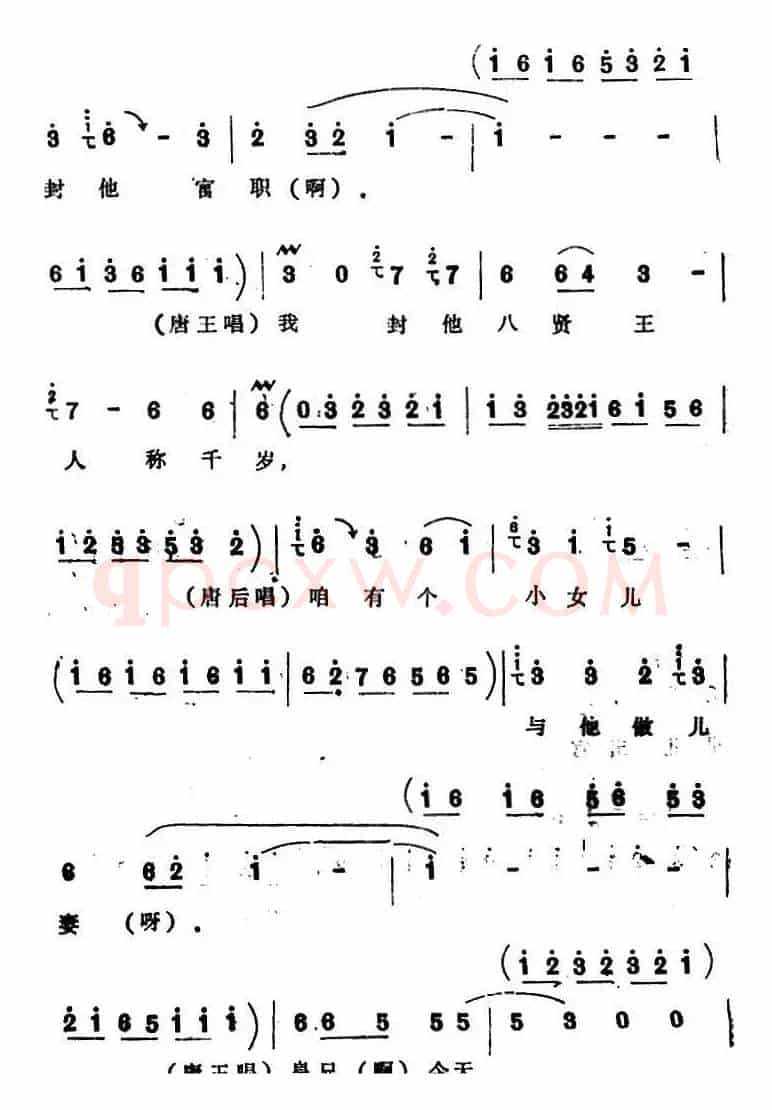 (i 6 i 6 5 3 2 i
3 i 6 - 3 | 2 3 2 i - | i - - - |
封他 富职(啊).
6 i 3 6 i i i) | 3 0 2 7 2 7 | 6 6 4 3 - |
(唐王唱)我 封他八贤王
2 7 - 6 6 | 6 (0 3 2 3 2 i | i 3 2 3 2 i 6 i 5 6 |
人 称千岁,
i 2 5 3 5 3 2) | i 6 3 6 i | 6 3 i i 5 - |
(唐后唱)咱有个 小女儿
qpcxw.COM
(i 6 i 6 i 6 i i | 6 2 7 6 5 6 5) | i 3 3 2 3 |
与他做儿
(i 6 i 6 5 6 5 3
6 6 2 i - | i - - - |
妻(呀).
(i 2 3 2 3 2 i)
2 i 6 5 i i i) | 6 6 5 5 5 | 5 3 0 0 |
(唐王唱)皇兄(啊)今天